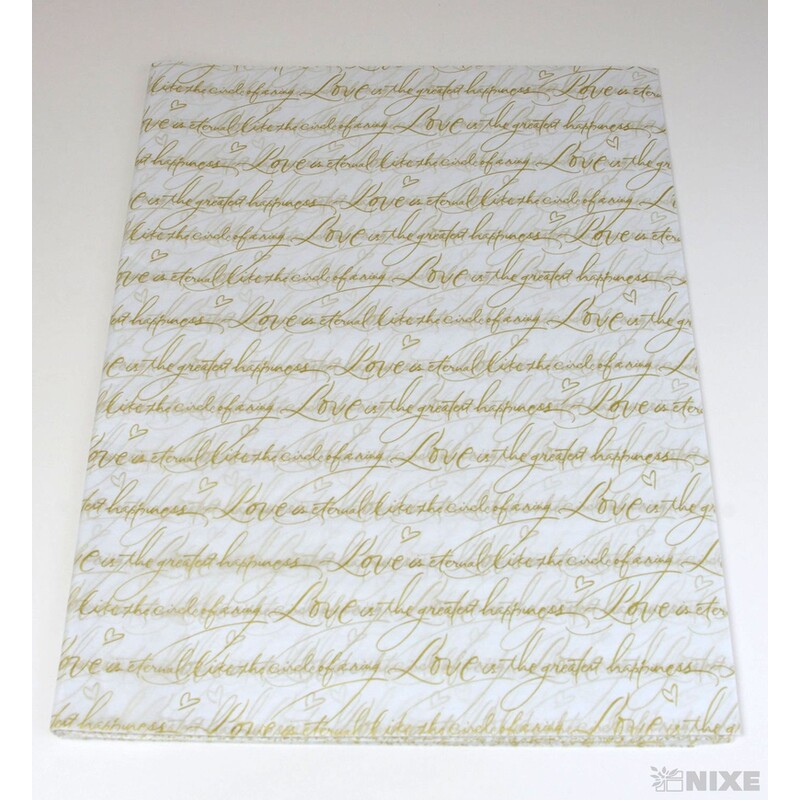 like the circle of a ring Love is the greatest happiness Love is eter
ve is eternal like the circle of a ring Love is the greatest happiness
at happiness Love is eternal like the circle of a ring Love is the gr
e is the greatest happiness Love is eternal like the circle of a ring L
like the circle of a ring Love is the greatest happiness Love is eterna
ove is eternal like the circle of a ring Love is the greatest happiness
at happiness Love is eternal like the circle of a ring Love is the gr
e is the greatest happiness Love is eternal like the circle of a ring L
like the circle of a ring Love is the greatest happiness Love is eter
ove is eternal like the circle of a ring Love is the greatest happiness
at happiness Love is eternal like the circle of a ring Love is the gr
e is the greatest happiness Love is eternal like the circle of a ring L
like the circle of a ring Love is the greatest happiness Love is eter
ove is eternal like the circle of a ring Love is the greatest happiness
at happiness Love is eternal like the circle of a ring Love is the g
NIXE